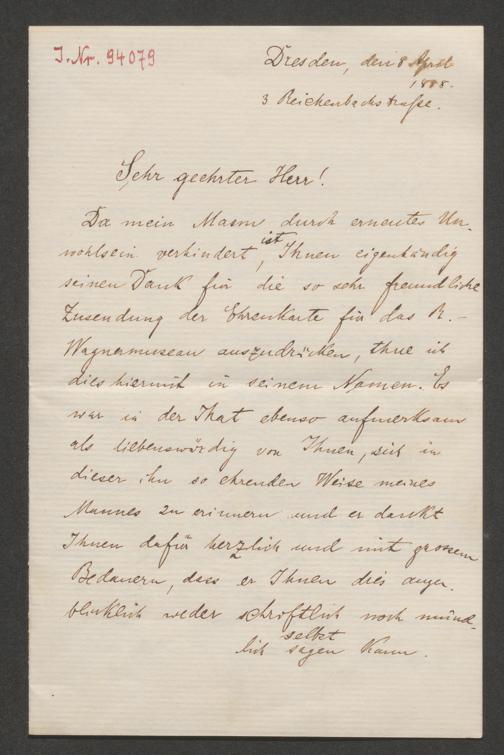 J. Nr. 94079
Dresden, den 8 April
1888.
3 Reichenbachstraße.
Sehr geehrter Herr!
Da mein Mann durch erneutes Un-
wohlsein verhindert ist, Ihnen eigenhändig
seinen Dank für die so sehr freundliche
Zusendung der Ehrenkarte für das R. -
Wagnermuseum auszudrücken, thue ich
dies hiermit in seinem Namen. Es
war in der That ebenso aufmerksam
als liebenswürdig von Ihnen, sich in
dieser ihn so ehrenden Weise meines
Mannes zu erinnern und er dankt
Ihnen dafür herzlich und mit grossem
Bedauern, dass er Ihnen dies augen-
blicklich weder schriftlich noch münd-
lich selbst sagen kann.